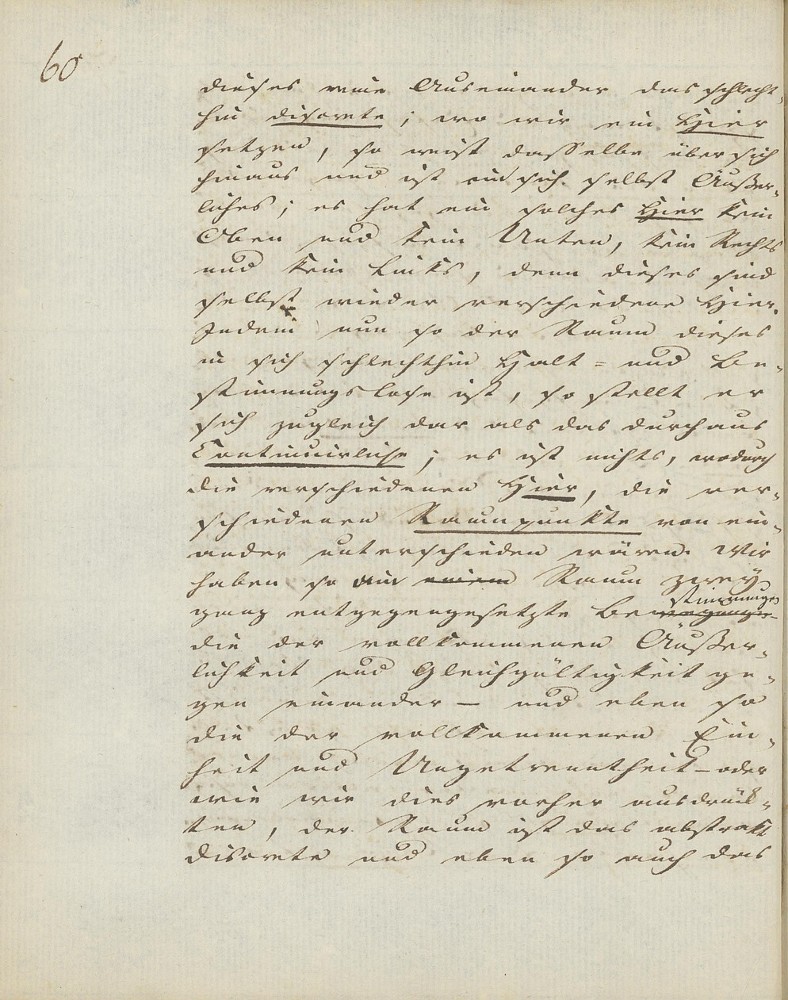 60
dieses reine Auseinander das schlecht-
hin discrete; wo wir ein Hier
setzen, so weist dasselbe über sich
hinaus und ist ein sich selbst Äußer-
liches; es hat ein solches Hier kein
Oben und kein Unten, kein Rechts
und kein Links, denn dieses sind
selbst wieder verschiedene Hier.
Indem nun so der Raum dieses
in sich schlechthin Halt- und Be-
stimmungslose ist, so stellt er
sich zugleich dar als das durchaus
Continuirliche; es ist nichts, wodurch
die verschiedenen Hier, die ver-
schiedenen Raumpunkte von ein-
ander unterschieden wären. Wir
haben so am Raum zwey
ganz entgegengesetzte Bestimmungen
die der vollkommenen Äußer-
lichkeit und Gleichgültigkeit ge-
gen einander – und eben so
die der vollkommenen Ein-
heit und Ungetrenntheit – oder
wie wir dies vorher ausdrück-
ten, der Raum ist das abstrakt
discrete und eben so auch das